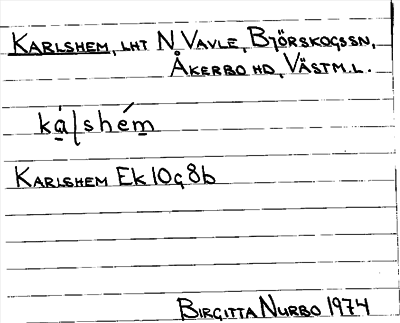 KARLSHEM, LHT N VAVLE, BJÖRSKOGSSN,
ÅKERBO HD, VÄSTM.L.
kálshém
KARLSHEM Ek 10g 8b
BIRGITTA NURBO 1974